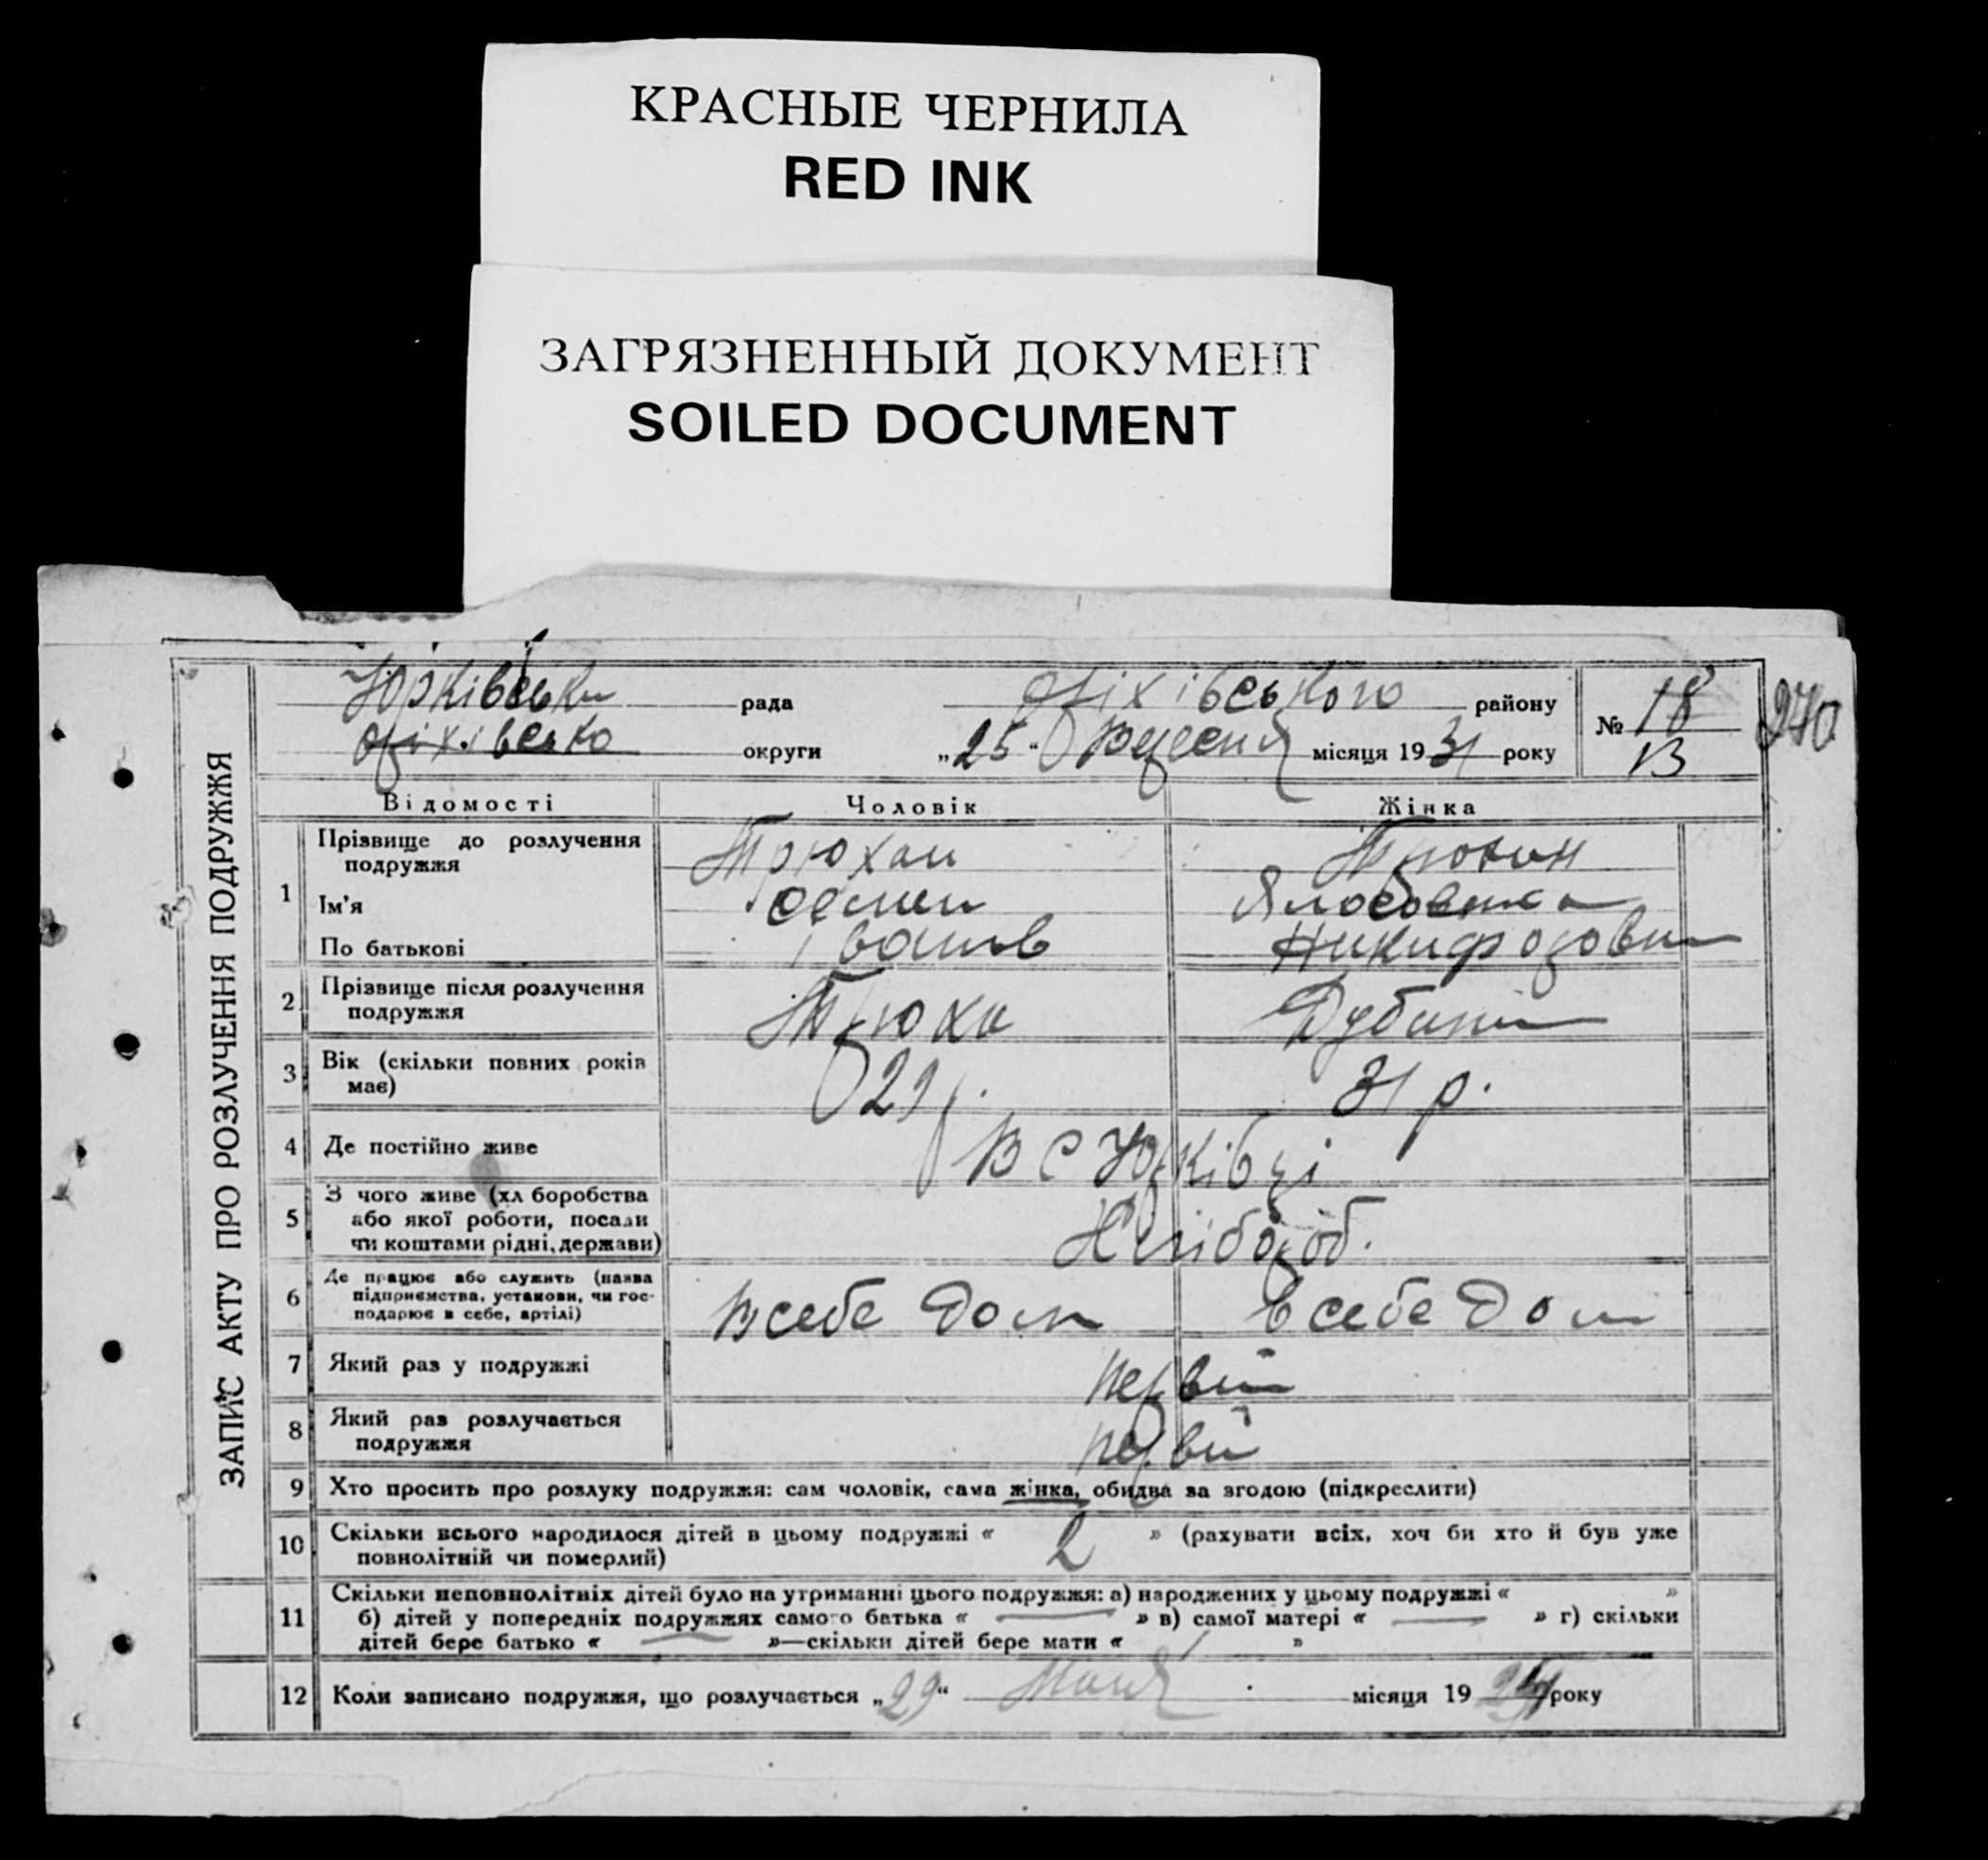 КРАСНЫЕ ЧЕРНИЛА
RED INK
ЗАГРЯЗНЕННЫЙ ДОКУМЕНТ
SOILED DOCUMENT
ЗАПИС АКТУ ПРО РОЗЛУЧЕННЯ ПОДРУЖЖЯ
Юрківська рада оріхівського району
оріхівсько округи „25“ Вересня місяця 1931 року
№ 18
13
270
Відомості Чоловік Жінка
1 Прізвище до розлучення
подружжя Трюхан Трюхан
Ім'я Семен
По батькові Іванів Никифоровна
2 Прізвище після розлучення
подружжя Трюха Дубини
3 Вік (скільки повних років
має) 29 р. 31 р.
4 Де постійно живе В С Юрківці
5 З чого живе (хліборобства
або якої роботи, посади
чи коштами рідні, держави) Хлібороб.
6 Де працює або служить (назва
підприємства, установи, чи гос-
подарює в себе, артілі) В себе Дом в себе Дом
7 Який раз у подружжі первий
8 Який раз розлучається
подружжя первий
9 Хто просить про розлуку подружжя: сам чоловік, сама жінка, обидва за згодою (підкреслити)
10 Скільки всього народилося дітей в цьому подружжі « 2 » (рахувати всіх, хоч би хто й був уже
повнолітній чи померлий)
11 Скільки неповнолітніх дітей було на утриманні цього подружжя: а) народжених у цьому подружжі « »
б) дітей у попередніх подружжях самого батька « — » в) самої матері « — » г) скільки
дітей бере батько « — »—скільки дітей бере мати « »
12 Коли записано подружжя, що розлучається „29“ Мая місяця 19 року